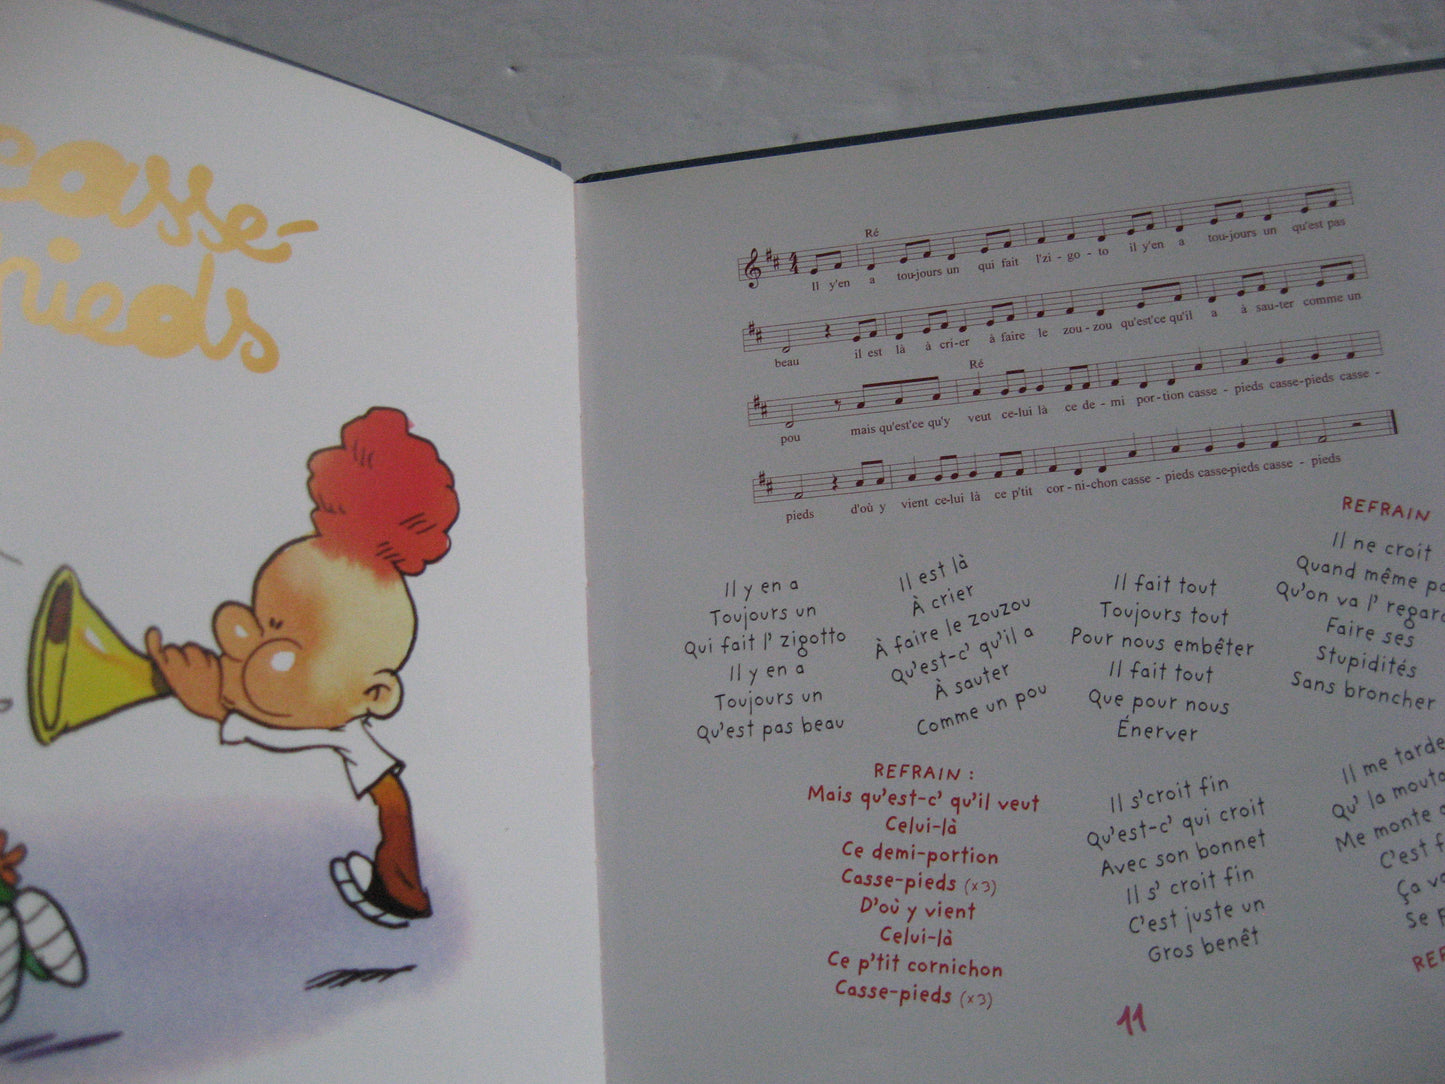 casse-
pieds
Ré
Il y'en a toujours un qui fait l'zi - go - to il y'en a tou-jours un qu'est pas
beau il est là à cri-er à faire le zou - zou qu'est'ce qu'il a à sau-ter comme un
Ré
pou mais qu'est'ce qu'y veut ce-lui là ce de - mi por-tion casse - pieds casse-pieds casse -
pieds d'où y vient ce-lui là ce p'tit cor - ni-chon casse - pieds casse-pieds casse - pieds
Il y en a
Toujours un
Qui fait l' zigotto
Il y en a
Toujours un
Qu'est pas beau
Il est là
À crier
À faire le zouzou
Qu'est-c' qu'il a
À sauter
Comme un pou
REFRAIN :
Mais qu'est-c' qu'il veut
Celui-là
Ce demi-portion
Casse-pieds (x3)
D'où y vient
Celui-là
Ce p'tit cornichon
Casse-pieds (x3)
Il fait tout
Toujours tout
Pour nous embêter
Il fait tout
Que pour nous
Énerver
Il s'croit fin
Qu'est-c' qui croit
Avec son bonnet
Il s' croit fin
C'est juste un
Gros benêt
REFRAIN
Il ne croit
Quand même
Qu'on va l'
Faire ses
Stupidités
Sans broncher
Il me tarde
Qu' la
Me monte
C'est
Ça
Se
11